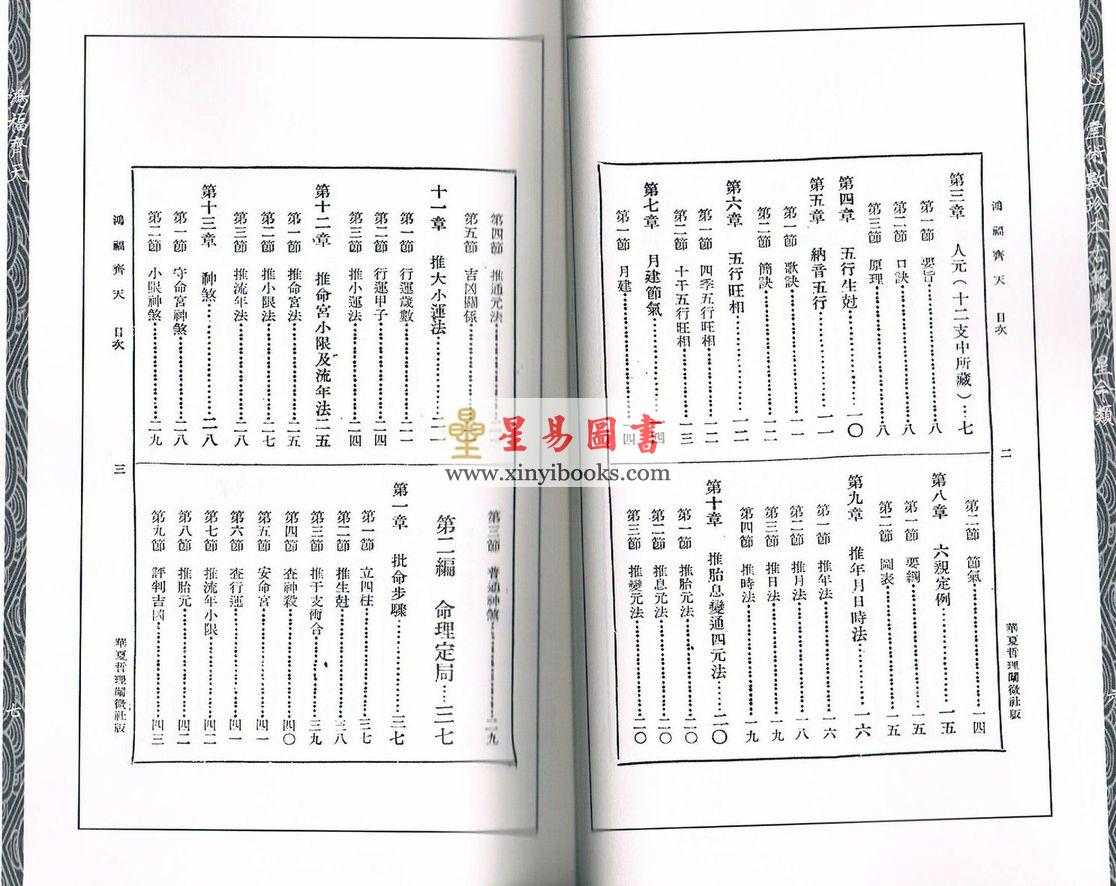 鴻福齊天 目次
二
華夏哲理闡微社版
第三章 人元（十二支中所藏）…七
第一節 要旨…八
第二節 口訣…八
第三節 原理…八
第四章 五行生尅…一〇
第五章 納音五行…一一
第一節 歌訣…一一
第二節 簡訣…一一
第六章 五行旺相…一二
第一節 四季五行旺相…一二
第二節 十干五行旺相…一三
第七章 月建節氣…四
第一節 月建…四
第二節 節氣…一四
第八章 六親定例…一五
第一節 要綱…一五
第二節 圖表…一五
第九章 推年月日時法…一六
第一節 推年法…一六
第二節 推月法…一八
第三節 推日法…一九
第四節 推時法…一九
第十章 推胎息變通四元法…二〇
第一節 推胎元法…二〇
第二節 推息元法…二〇
第三節 推變元法…二〇
第四節 推通元法
第五節 吉凶關係
十一章 推大小運法…二一
第一節 行運歲數…二一
第二節 行運甲子…二四
第三節 推小運法…二四
第十二章 推命宮小限及流年法二五
第一節 推命宮法…二五
第二節 推小限法…二七
第三節 推流年法…二八
第十三章 神煞…二八
第一節 守命宮神煞…二八
第二節 小限神煞…二九
第三節 普通神煞…二九
第二編 命理定局…三七
第一章 批命步驟…三七
第一節 立四柱…三七
第二節 推生尅…三八
第三節 推干支術合…三九
第四節 查神殺…四〇
第五節 安命宮…四一
第六節 查行運…四一
第七節 推流年小限…四二
第八節 推胎元…四二
第九節 評判吉凶…四三
鴻福齊天 目次
三
華夏哲理闡微社版
鴻福齊天
七
心一堂術數珍本古籍叢刊 星命類
星易圖書
www.xinyibooks.com